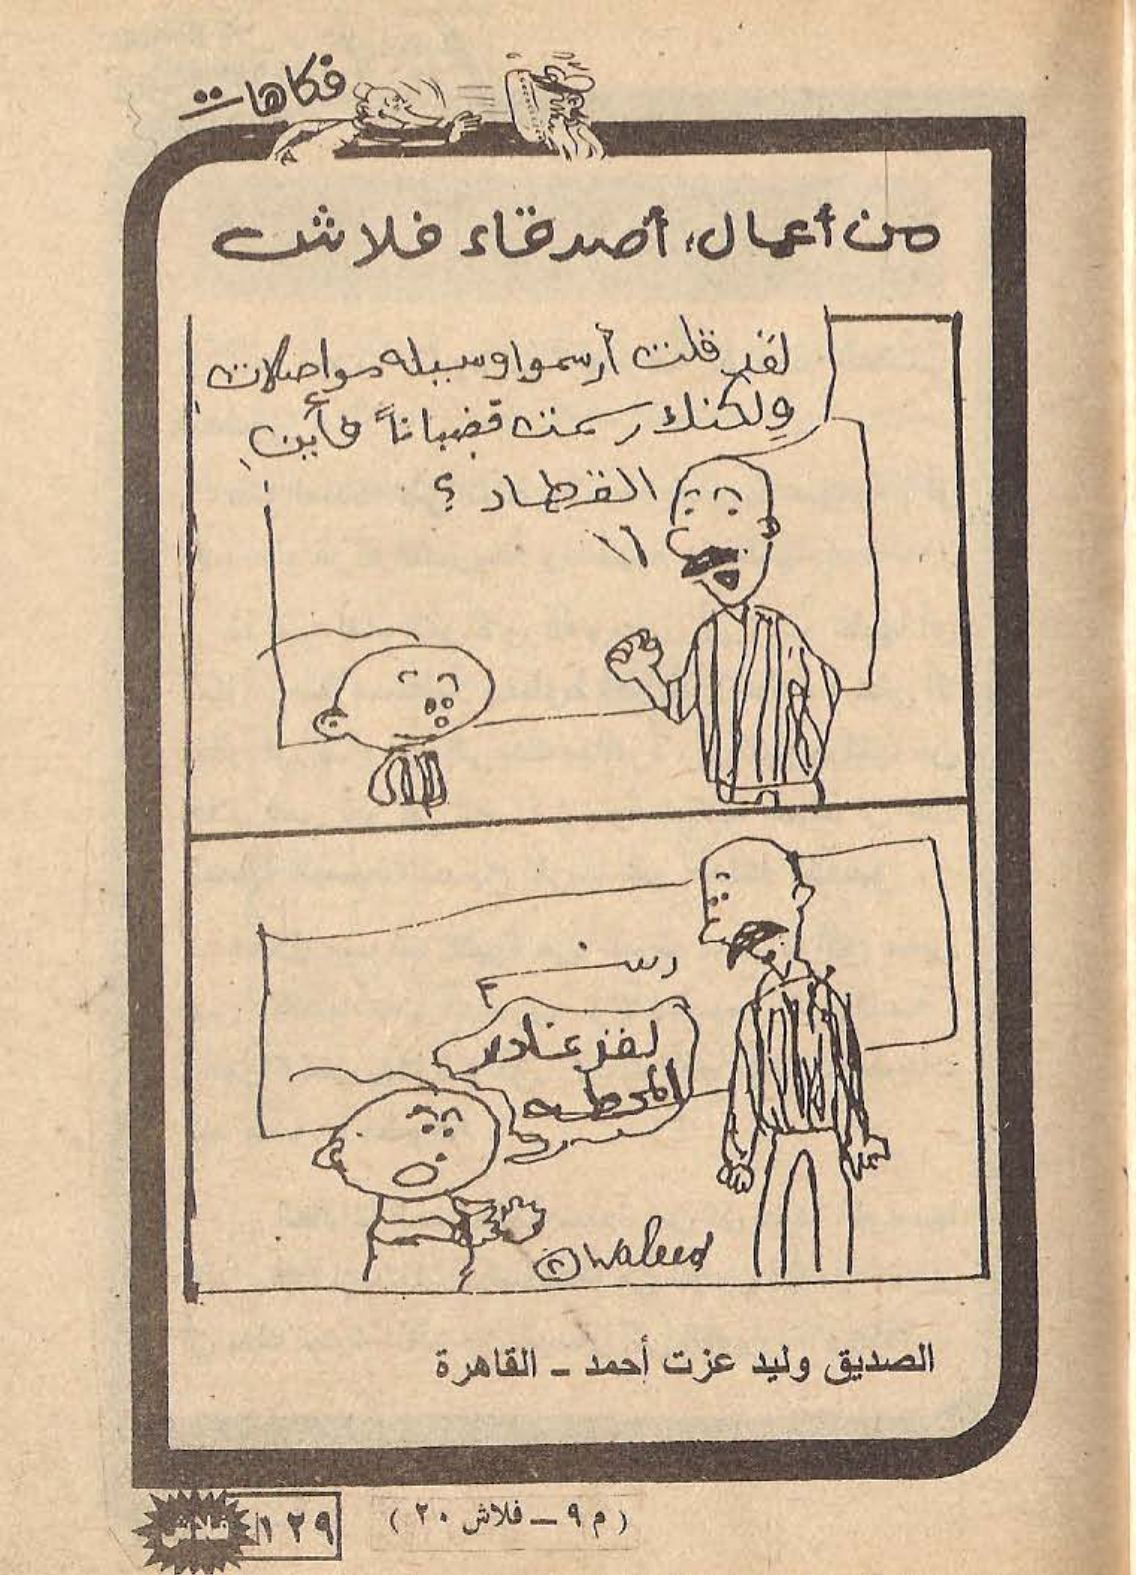 فكاهات
من أعمال، أصدقاء فلاش
لقد قلت أرسموا وسيله مواصلات
ولكنك رسمت قضباناً فأين
القطار ؟
لقد غادر
المحطه
waleed
الصديق وليد عزت أحمد ــ القاهرة
(م ٩ ــ فلاش ٢٠)
١٢٩
فلاش